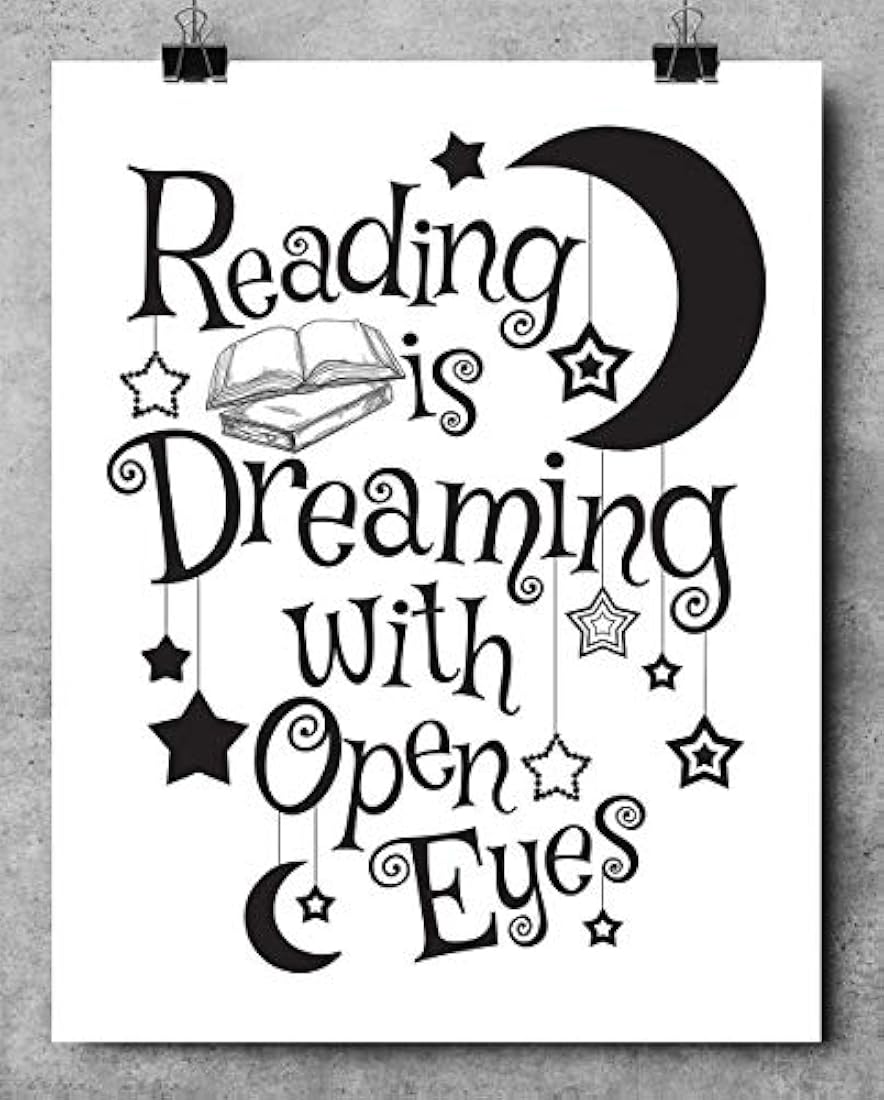 Reading
is
Dreaming
with
Open
Eyes